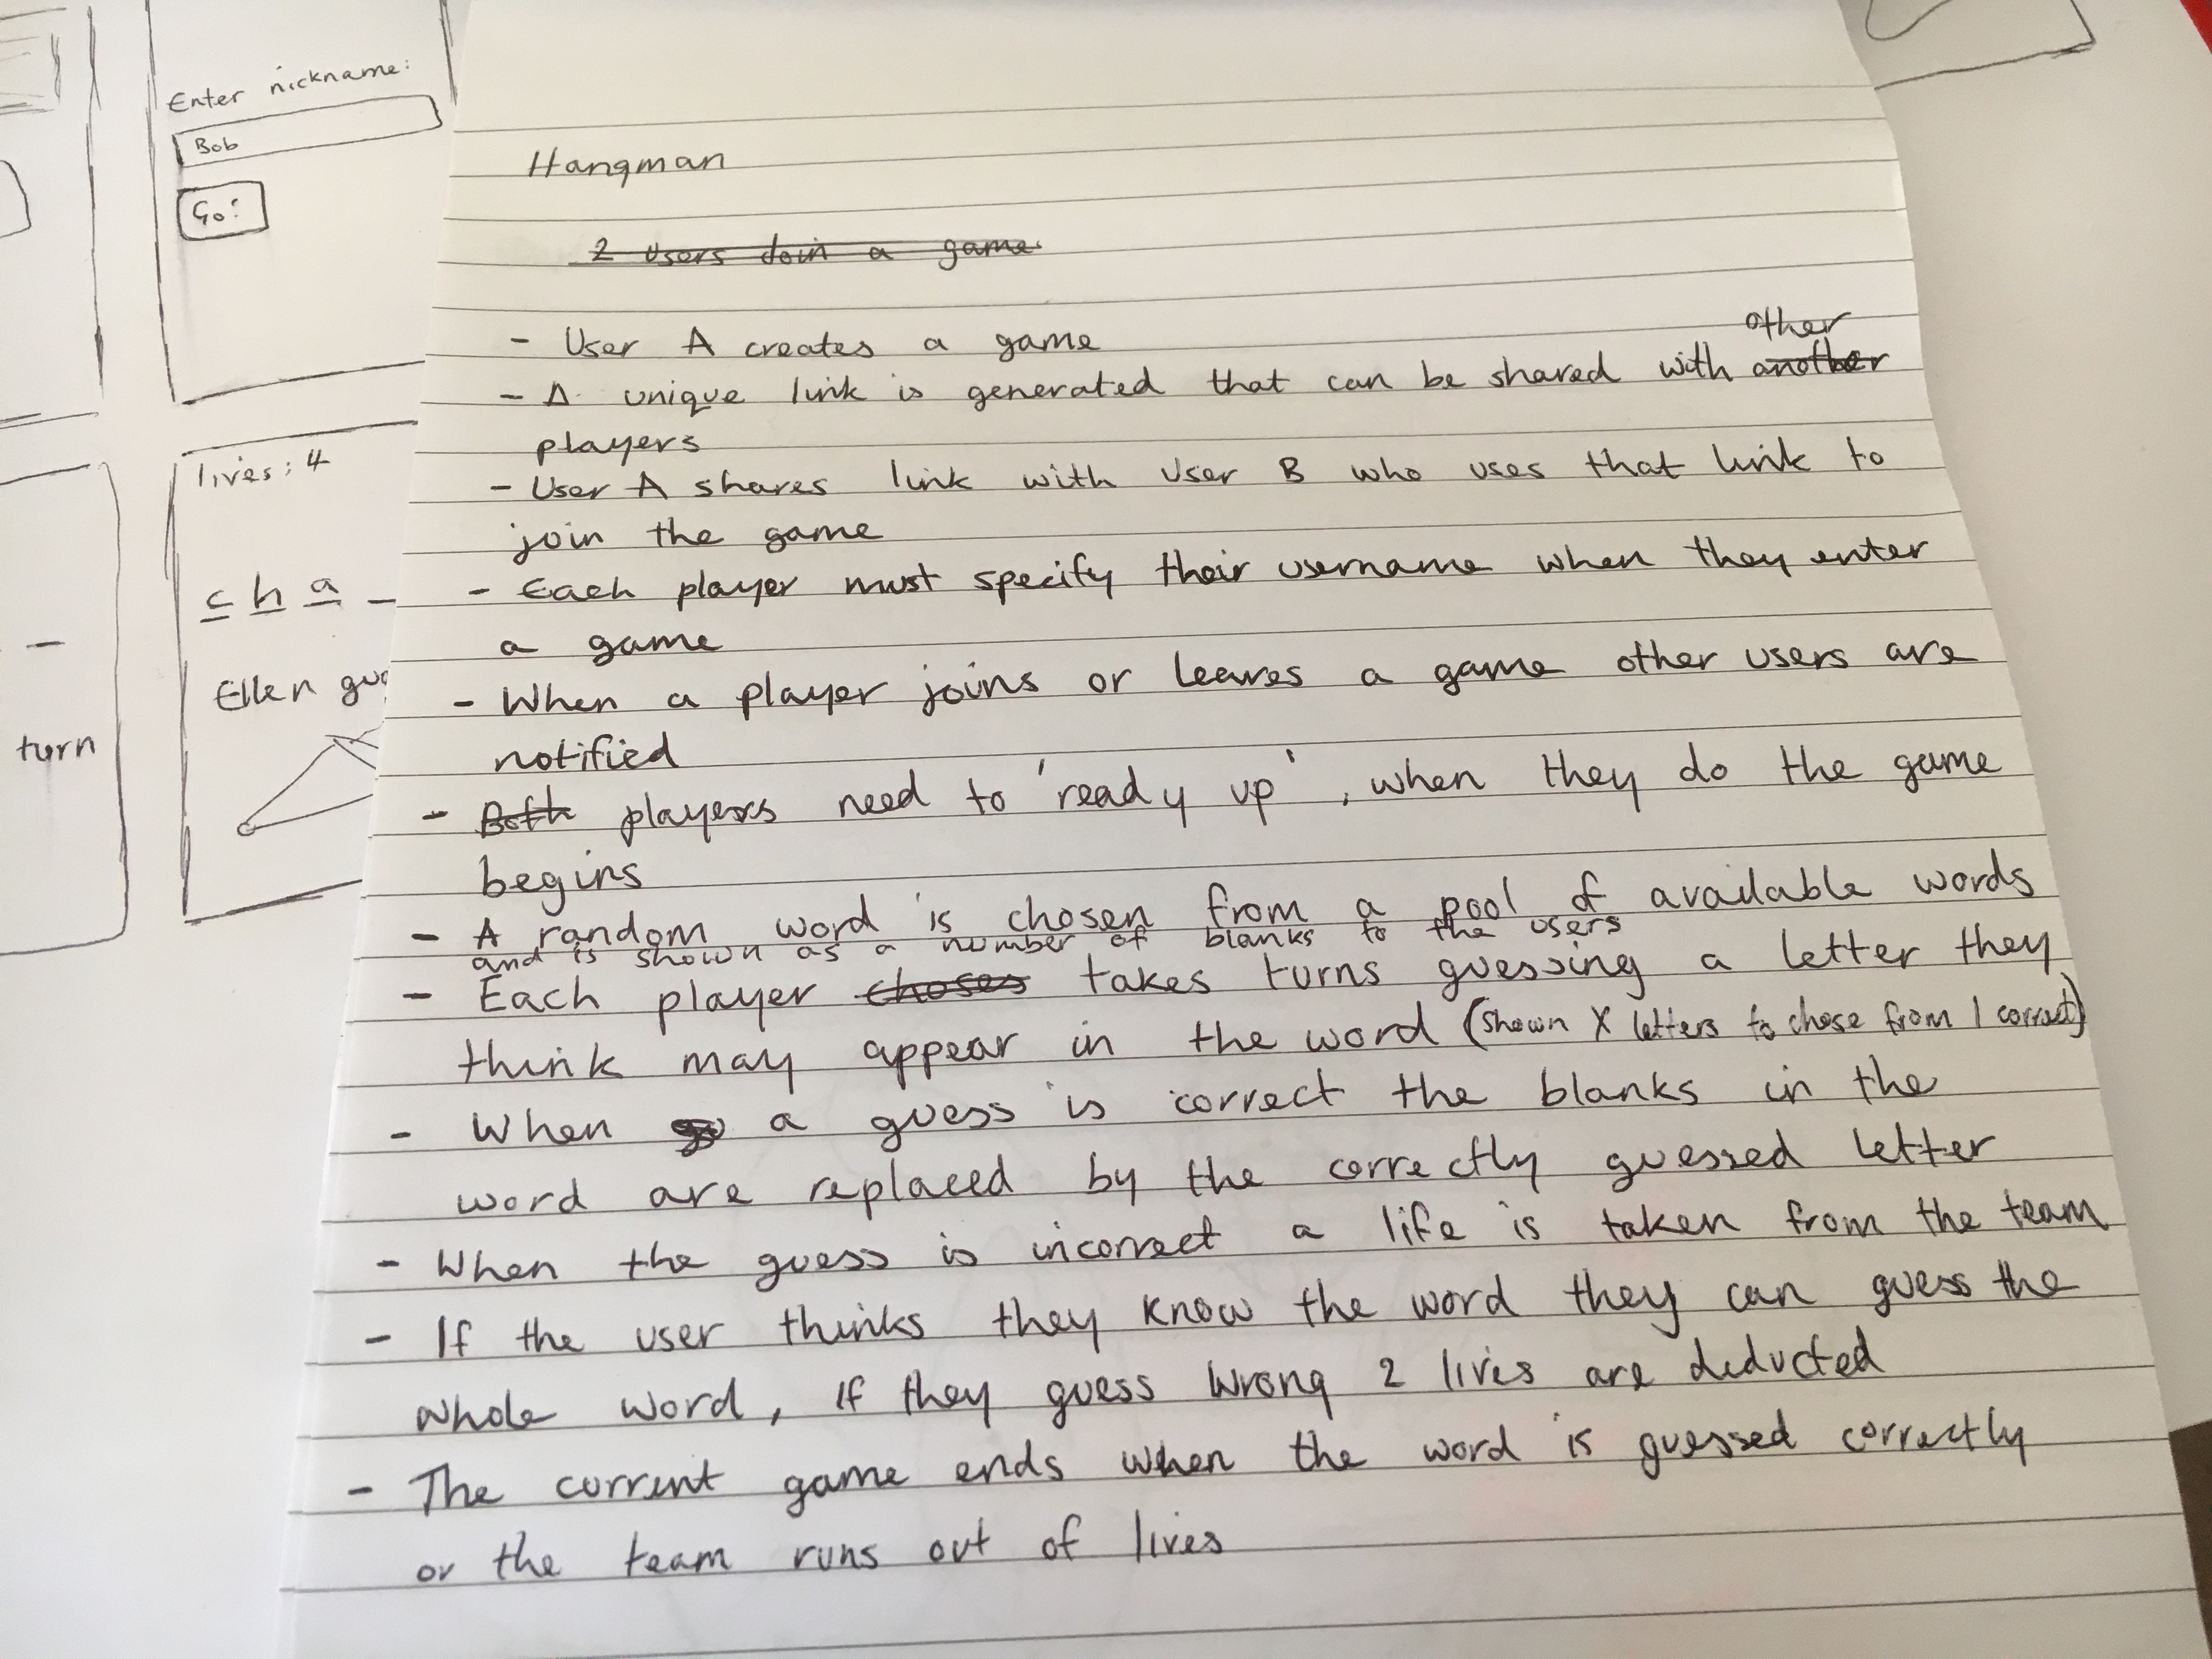 Enter nickname:
Bob
Go!
lives: 4
c h a _
Ellen
turn
Hangman
2 users join a game
- User A creates a game
other
- A unique link is generated that can be shared with another
players
- User A shares link with User B who uses that link to
join the game
- Each player must specify their username when they enter
a game
- When a player joins or leaves a game other users are
notified
- Both players need to 'ready up', when they do the game
begins
- A random word is chosen from a pool of available words
and is shown as a number of blanks to the users
- Each player choses takes turns guessing a letter they
think may appear in the word (shown X letters to chose from 1 correct)
- When a guess is correct the blanks in the
word are replaced by the correctly guessed letter
- When the guess is incorrect a life is taken from the team
- If the user thinks they know the word they can guess the
whole word, if they guess wrong 2 lives are deducted
- The current game ends when the word is guessed correctly
or the team runs out of lives